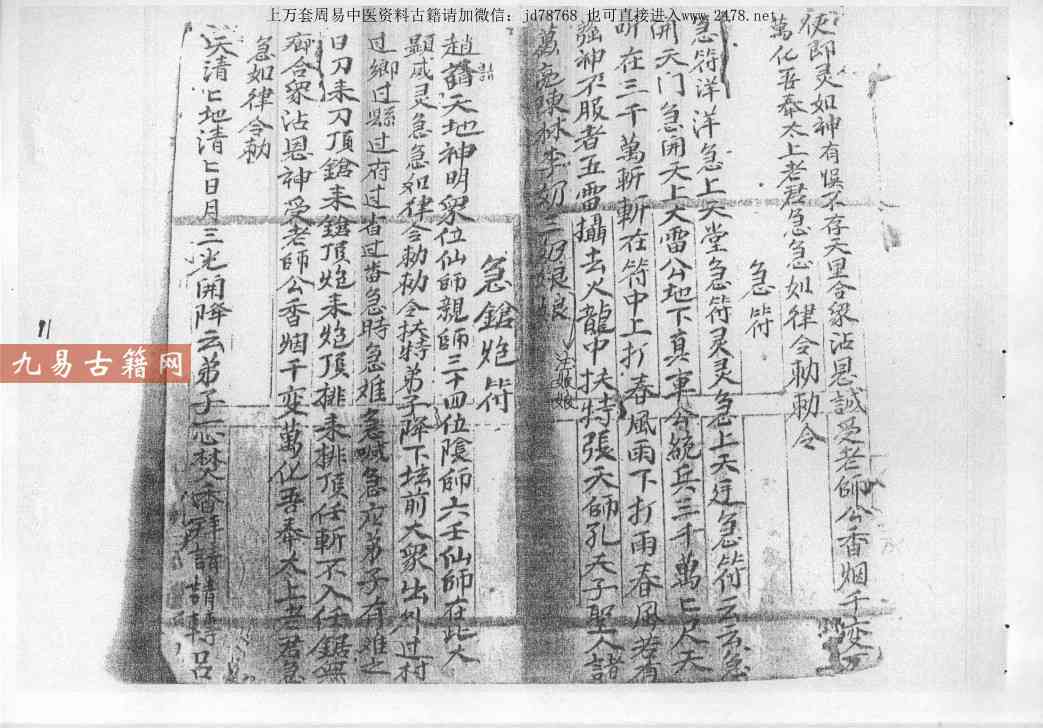 上万套周易中医资料古籍请加微信：jd78768 也可直接进入www.2478.net
使即灵如神有悞不存天里合眾沾恩誠受老師公香烟千变
萬化吾奉太上老君急急如律令勅勅令
急符
急符洋洋急上天堂急符灵灵急上天廷急符云云急
開天门急開天上大雷公地下真軍分統兵三千萬匕人天
听在三千萬斬斬在符中上打春風雨下打雨春風若有
強神不服者五雷攝去火龍中扶持張天師孔夫子聖人諸
陳林李奶三奶娘娘
娘娘
急鎗炮符
趙請天地神明眾位仙師親師三十四位陰師六壬仙師在此大
顯威灵急急如律令勅勅令扶持弟子降下坛前大眾出州过村
过鄉过縣过府过省过畨急時急难急喊急应弟子有难之
日刀来刀頂鎗来鎗頂炮来炮頂排来排頂任斬不入任鋸無
合眾沾恩神受老師公香烟千变萬化吾奉太上老君急
急如律令勅
天清匕地清匕日月三光開降云弟子一心焚香拜請請轉呂
九易古籍网